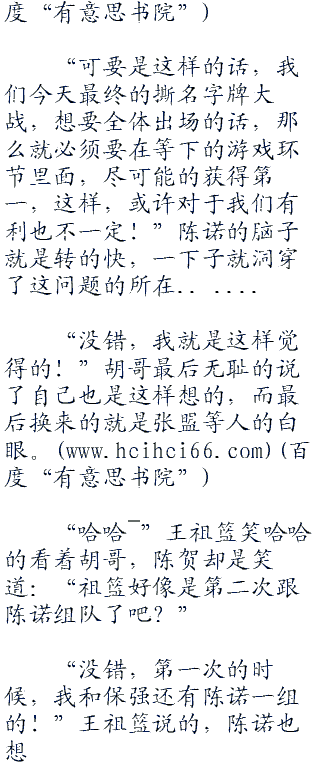 度“有意思书院”)
“可要是这样的话，我
们今天最终的撕名字牌大
战，想要全体出场的话，那
么就必须要在等下的游戏环
节里面，尽可能的获得第
一，这样，或许对于我们有
利也不一定！”陈诺的脑子
就是转的快，一下子就洞穿
了这问题的所在.. ....
“没错，我就是这样觉
得的！”胡哥最后无耻的说
了自己也是这样想的，而最
后换来的就是张盟等人的白
眼。(www.hcihci66.com)(百
度“有意思书院”)
“哈哈¯”王祖篮笑哈哈
的看着胡哥，陈贺却是笑
道：“祖篮好像是第二次跟
陈诺组队了吧？”
“没错，第一次的时
候，我和保强还有陈诺一组
的！”王祖篮说的，陈诺也
想